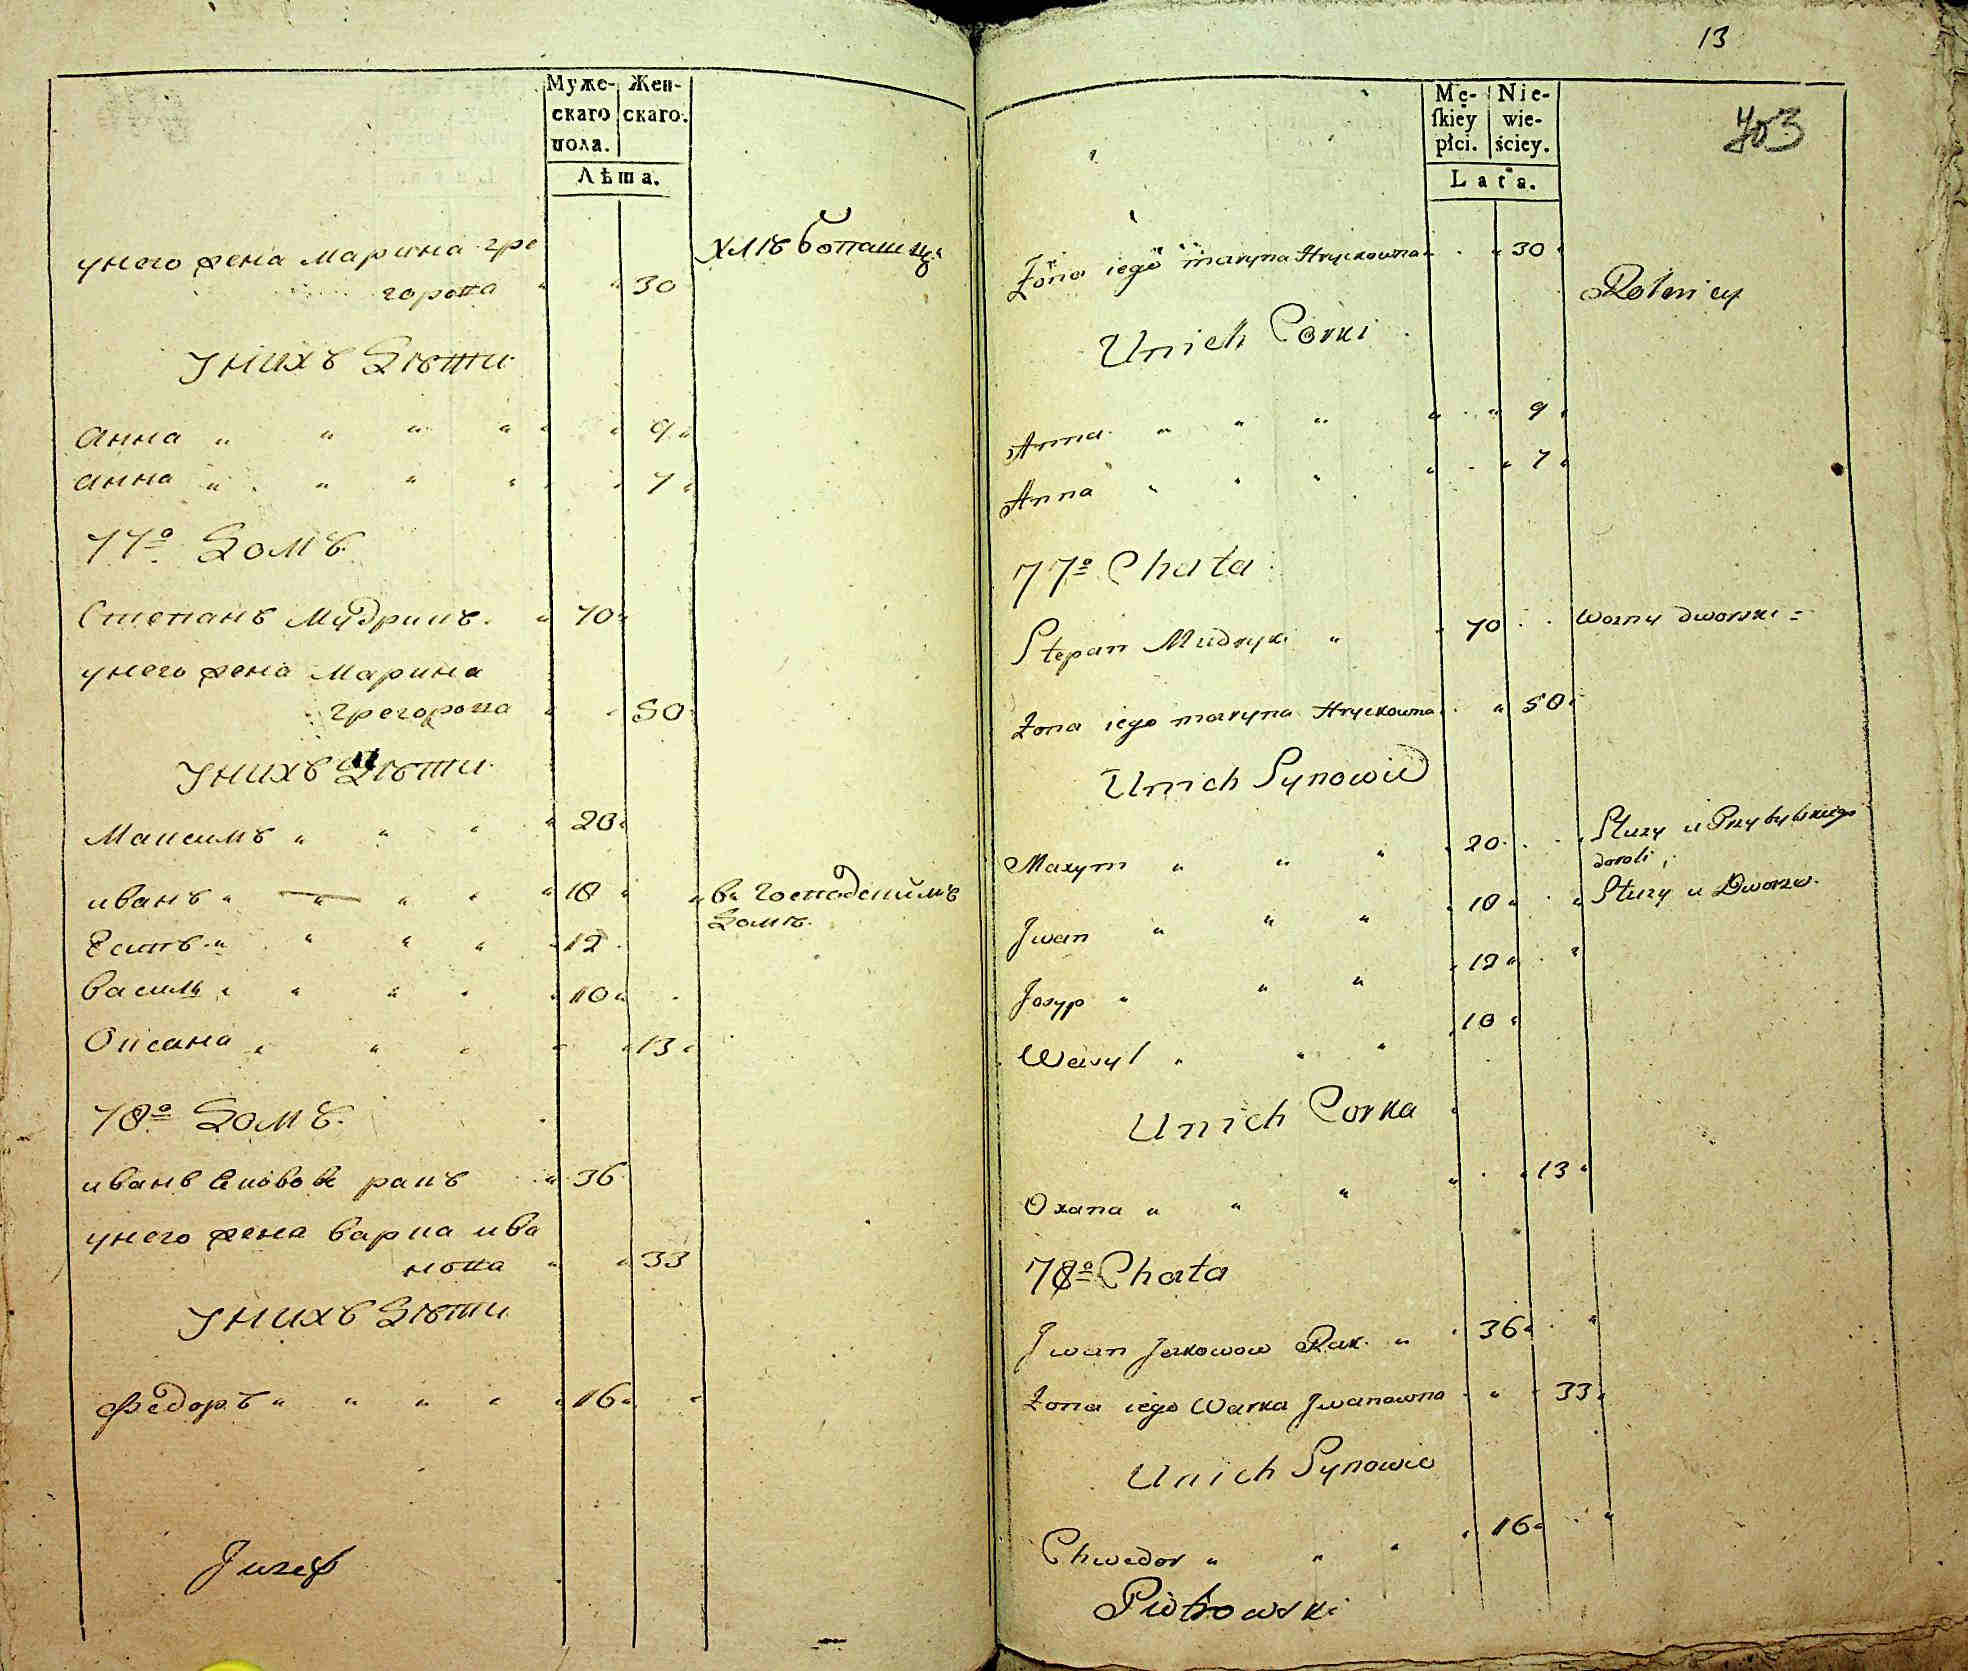 Муже-
скаго
пола.
Жен-
скаго.
Лѣта.
хлѣбопашцы
унего жена марина гре
горова 30
Унихъ Дѣти
Анна 9
анна 7
77º Домъ.
Степанъ Мудрикъ. 70
унего жена марина
грегорова 50
Унихъ Дѣти
Максимъ 20
иванъ 18 в Господскимъ
Домѣ.
Есипъ 12
Василь 10
Оксана 13
78º Домъ.
иванъ Яковов ракъ 36
унего жена варка ива
нова 33
Унихъ Дѣти
Федоръ 16
Juzef
13
703
Mę-
ſkiey
płci.
Nie-
wie-
ściey.
Lata.
Żona iego maryna Hryckowna 30
Rolnicy
Unich Corki
Anna 9
Anna 7
77º Chata
Stepan Mudryk 70 Wozny dworski
Żona iego maryna Hryckowna 50
Unich Synowie
Maxym 20 Służy u Przybylskiego
Jwan 18 Służy u Dworze.
Josyp 12
Wasyl 10
Unich Corka
Oxana 13
78º Chata
Jwan Jakowow Rak 36
Żona iego Warka Jwanowna 33
Unich Synowie
Chwedor 16
Piotrowski